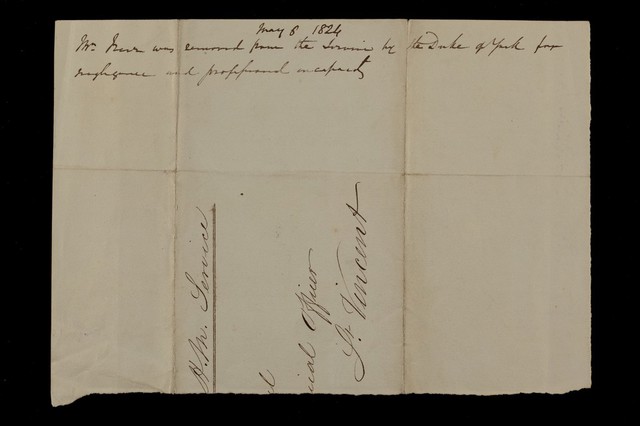 May 6 1824
Mr. was removed from the Service by the Duke of York for
negligence and professional incapacity
H. M. Service
Officer
St. Vincent